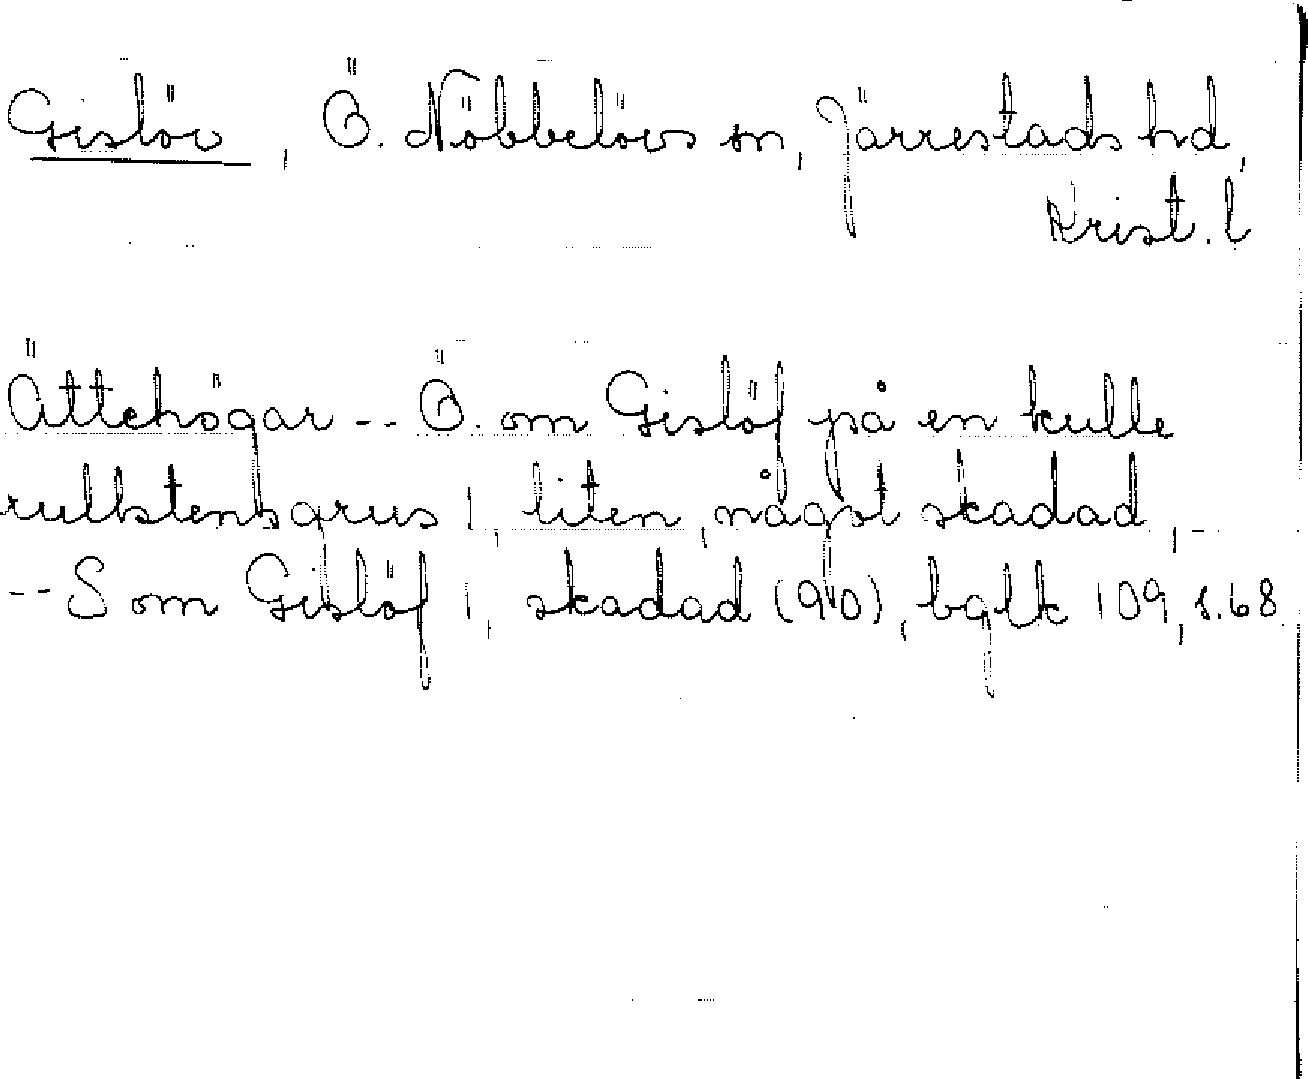 Gislöv, Ö. Nöbbelövs sn, Järrestads hd,
Krist. l
Ättehögar -- Ö. om Gislöf på en kulle
rullstensgrus 1, liten, något skadad, -
-- S om Gislöf 1, skadad (90), bglk 109, s. 68